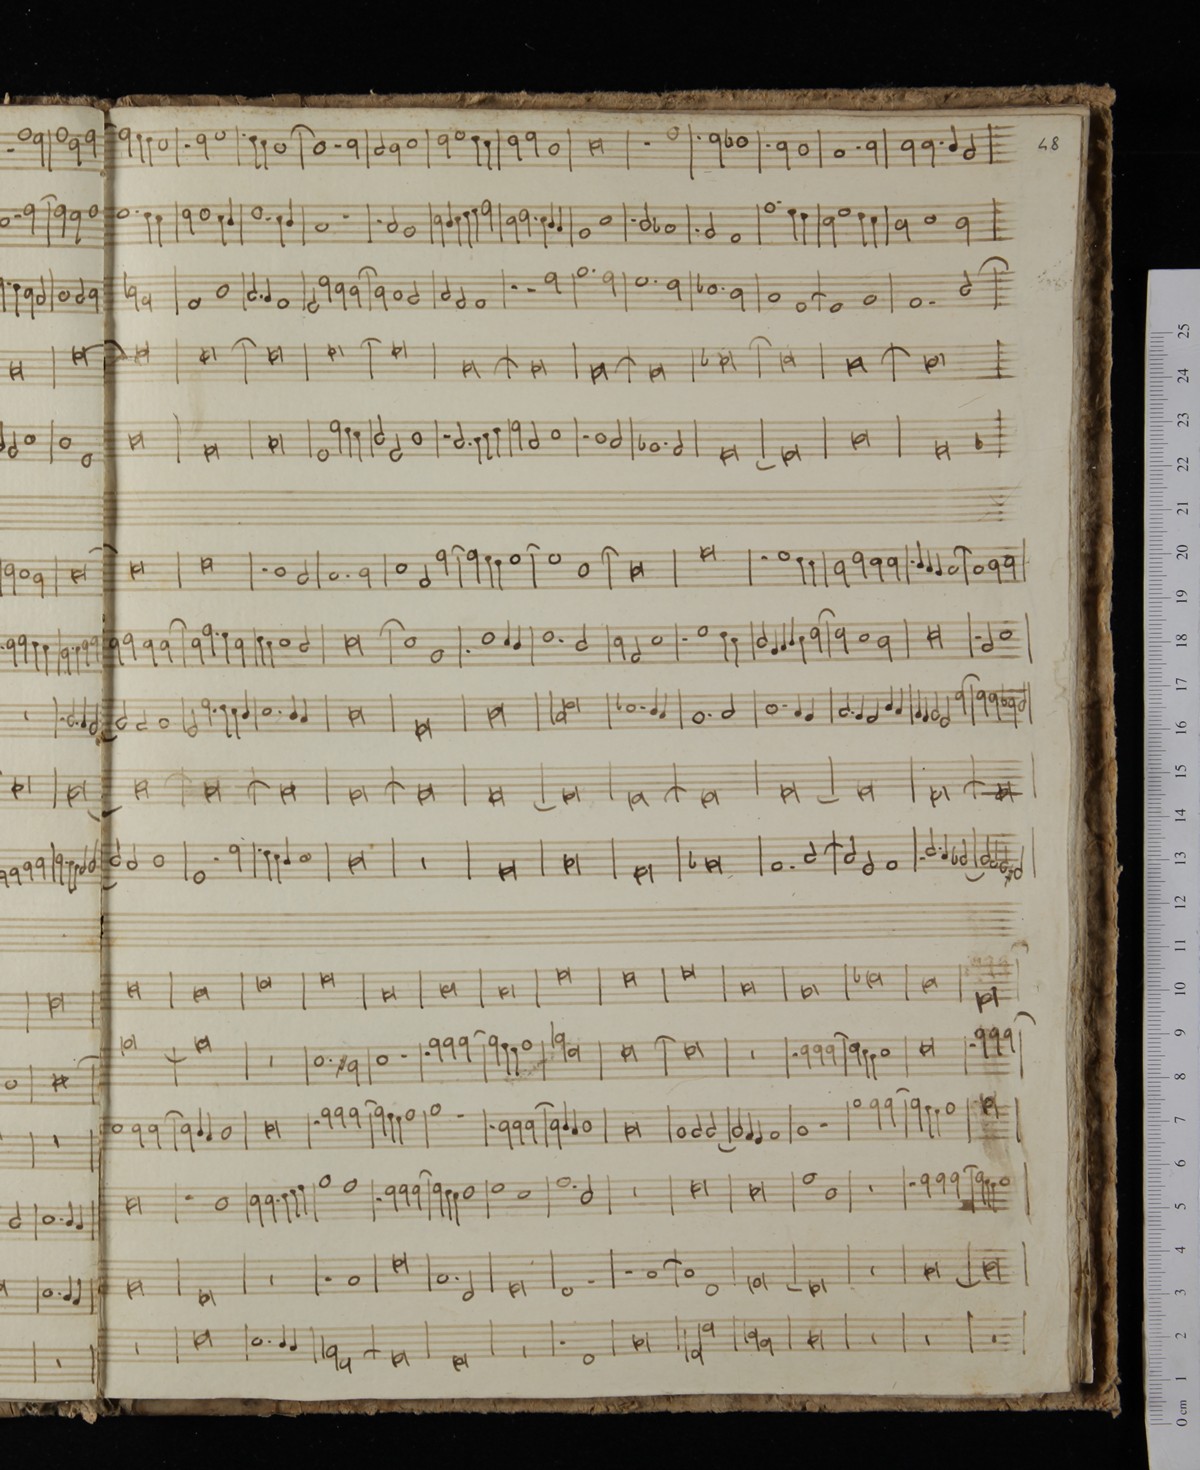 48
25
24
23
22
21
20
19
18
17
16
15
14
13
12
11
10
9
8
7
6
5
4
3
2
1
0 cm